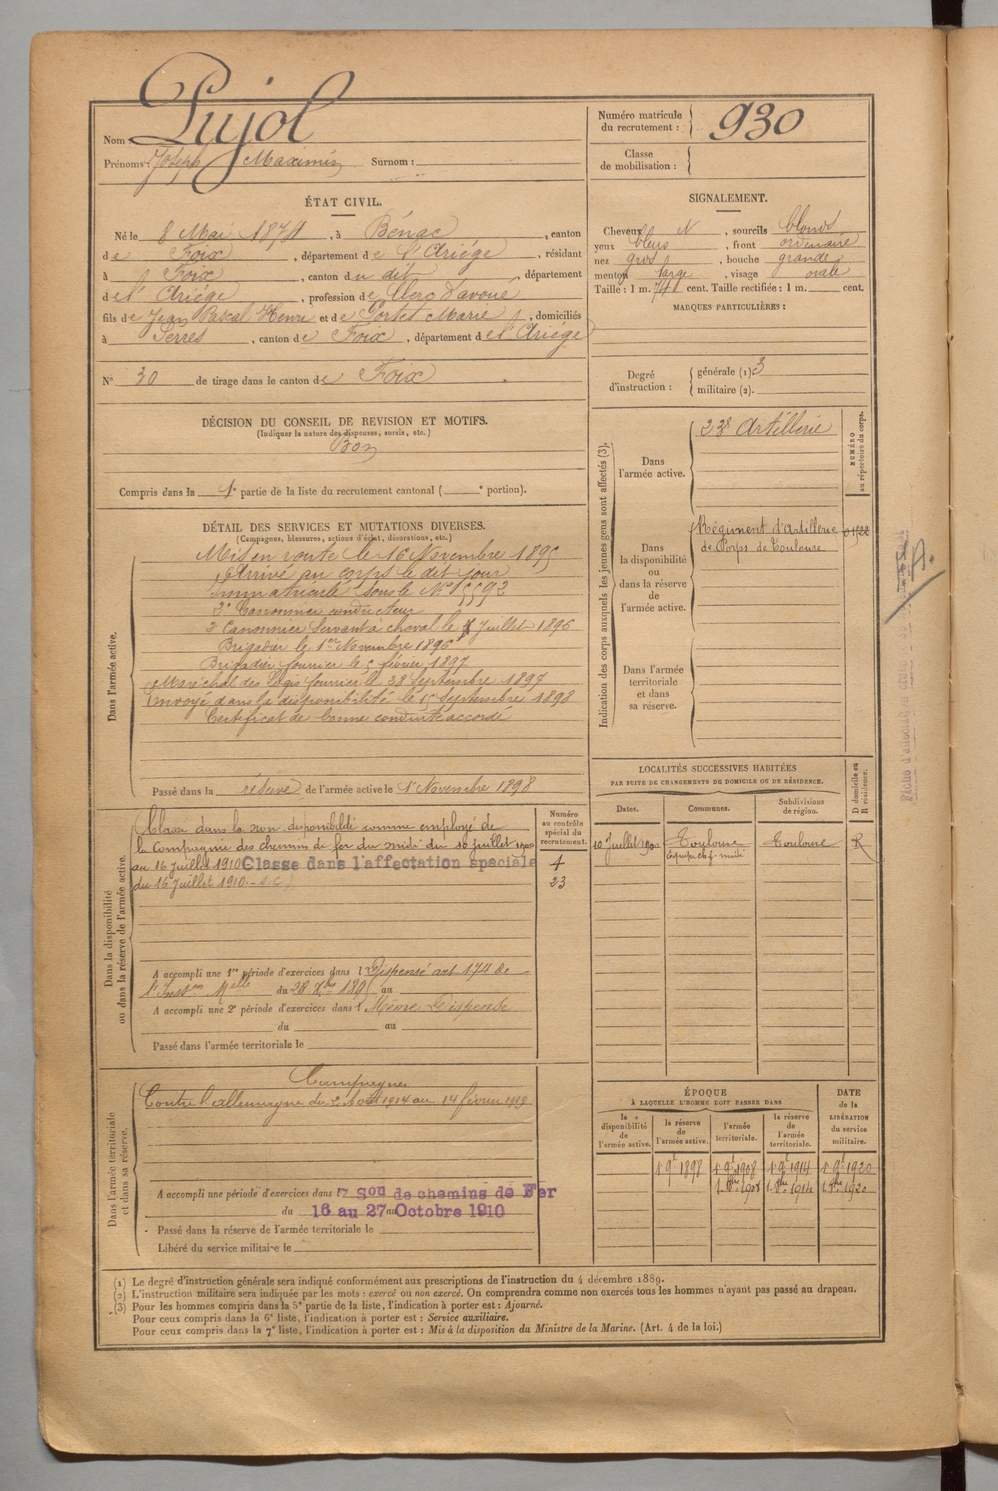 Nom Pujol
Prénoms : Joseph Maximin Surnom :
Numéro matricule du recrutement : 930
Classe de mobilisation :
ÉTAT CIVIL.
Né le 8 Mai 1874, à Bénac, canton
de Foix, département de l'Ariége, résidant
à Foix, canton du dit, département
de l'Ariége, profession de Clerc d'avoué
fils de Jean Pascal Henri et de Portet Marie, domiciliés
à Serres, canton de Foix, département de l'Ariége
N° 30 de tirage dans le canton de Foix
SIGNALEMENT.
Cheveux N, sourcils blonds
yeux bleus, front ordinaire
nez gros, bouche grande
menton large, visage ovale
Taille : 1 m. 741 cent. Taille rectifiée : 1 m. cent.
MARQUES PARTICULIÈRES :
Degré d'instruction : générale (1) 3
militaire (2).
DÉCISION DU CONSEIL DE REVISION ET MOTIFS.
(Indiquer la nature des dispenses, sursis, etc.)
Bon
Compris dans la 1e partie de la liste du recrutement cantonal ( e portion).
DÉTAIL DES SERVICES ET MUTATIONS DIVERSES.
(Campagnes, blessures, actions d'éclat, décorations, etc.)
Dans l'armée active.
Mis en route le 16 Novembre 1895
Arrivé au corps le dit jour
Immatriculé sous le N° 5592
2e Canonnier conducteur
2e Canonnier Servant à cheval le Juillet 1896
Brigadier le 1er Novembre 1896
Brigadier fourrier le 5 février 1897
Maréchal des Logis fourrier le 28 Septembre 1897
Envoyé dans la disponibilité le 15 Septembre 1898
Certificat de bonne conduite accordé
Passé dans la réserve de l'armée active le 1er Novembre 1898
Indication des corps auxquels les jeunes gens sont affectés (3).
NUMÉRO au répertoire du corps.
Dans l'armée active.
23e Artillerie
Dans la disponibilité ou dans la réserve de l'armée active.
Régiment d'Artillerie
de Corps de Toulouse
Dans l'armée territoriale et dans sa réserve.
Dans la disponibilité ou dans la réserve de l'armée active.
Numéro au contrôle spécial du recrutement.
Classé dans la non disponibilité comme employé de
la Compagnie des chemins de fer du midi du 10 juillet 1900
au 16 Juillet 1910 Classé dans l'affectation spéciale
du 16 Juillet 1910. - S.C)
1
23
A accompli une 1re période d'exercices dans l Dispensé art 174 de
l'Inston Melle du 28 Xbre 1895 au
A accompli une 2e période d'exercices dans l Même Dispense
du au
Passé dans l'armée territoriale le
LOCALITÉS SUCCESSIVES HABITÉES
PAR SUITE DE CHANGEMENTS DE DOMICILE OU DE RÉSIDENCE.
D domicile ou R résidence.
Dates. Communes. Subdivisions de région.
10 Juillet 1900 Toulouse Toulouse R
Dans l'armée territoriale et dans sa réserve.
Campagne
Contre l'allemagne du 2 Août 1914 au 14 février 1919
A accompli une période d'exercices dans l 7 Son de chemins de Fer
du 16 au 27 Octobre 1910
Passé dans la réserve de l'armée territoriale le
Libéré du service militaire le
ÉPOQUE
À LAQUELLE L'HOMME DOIT PASSER DANS
la disponibilité de l'armée active. la réserve de l'armée active. l'armée territoriale. la réserve de l'armée territoriale.
DATE de la LIBÉRATION du service militaire.
1er 9bre 1898 1er 9bre 1908 1er 9bre 1914 1er 9bre 1920
(1) Le degré d'instruction générale sera indiqué conformément aux prescriptions de l'instruction du 4 décembre 1889.
(2) L'instruction militaire sera indiquée par les mots : exercé ou non exercé. On comprendra comme non exercés tous les hommes n'ayant pas passé au drapeau.
(3) Pour les hommes compris dans la 5e partie de la liste, l'indication à porter est : Ajourné.
Pour ceux compris dans la 6e liste, l'indication à porter est : Service auxiliaire.
Pour ceux compris dans la 7e liste, l'indication à porter est : Mis à la disposition du Ministre de la Marine. (Art. 4 de la loi.)